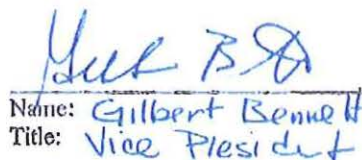 Name: Gilbert Bennett
Title: Vice President